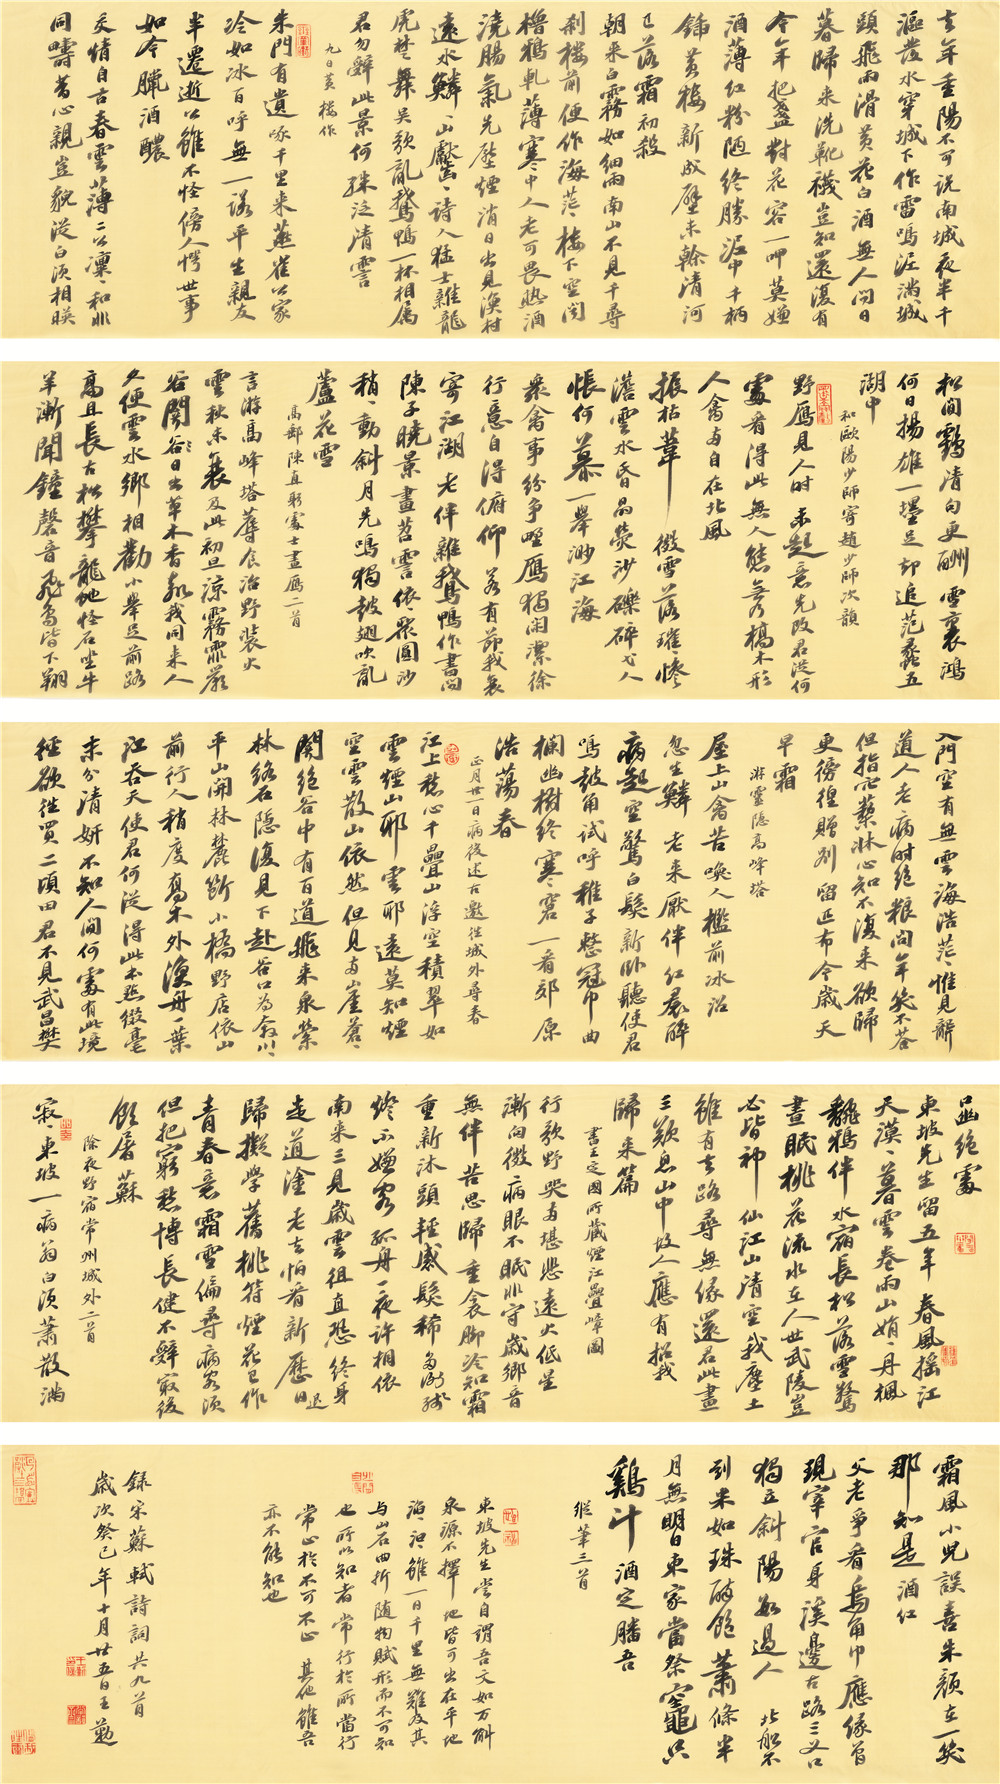 去年重陽不可說南城夜半千
漚發水穿城下作雷鳴泥滿城
頭飛雨滑黄花白酒無人問日
暮歸來洗靴襪豈知還復有
今年把盞對花容一呷莫嫌
酒薄红粉陋終勝泥中千柄
鍤黄樓新成壁未幹清河
已落霜初殺
朝來白霧如細雨南山不見千尋
刹樓前便作海茫〻樓下空聞
櫓鴉軋薄寒中人老可畏熱酒
澆腸氣先壓煙消日出見漁村
遠水鱗〻山齾〻詩人猛士雜龍
虎楚舞吳歌亂鵝鴨一杯相屬
君勿辭此景何殊泛清霅
九日黄樓作
朱門有遺啄千里來燕雀公家
冷如冰百呼無一諾平生親友
半遷逝公雖不怪傍人愕世事
如今臘酒醲
交情自古春雲薄二公凜〻和非
同疇昔心親豈貌從白須相映
松間鶴清句更酬雪裏鴻
何日揚雄一廛足却追范蠡五
湖中
和歐陽少師寄趙少師次韻
野鴈見人時未起意先改君從何
處看得此無人態無乃槁木形
人禽兩自在北風
振枯葦微雪落璀〻慘
澹雲水昏晶熒沙礫碎弋人
悵何慕一舉渺江海
衆禽事紛争野鴈獨閑潔徐
行意自得俯仰若有節我衰
寄江湖老伴雜鵝鴨作書問
陳子曉景畫苕霅依〻聚圓沙
稍〻動斜月先鳴獨鼓翅吹亂
蘆花雪
高郵陳直躬處士畫鴈二首
言游高峰塔蓐食治野裝火
雲秋未衰及此初旦涼霧霏巖
谷闇〻日出草木香嘉我同來人
久便雲水鄉相勸小舉足前路
高且長古松攀龍蛇怪石坐牛
羊漸聞鐘磬音飛鳥皆下翔
入門空有無雲海浩茫〻惟見聾
道人老病時絕粮問年笑不荅
但指穴藜牀心知不復來欲歸
更徬徨贈别留匹布今歲天
早霜
游靈隱高峰塔
屋上山禽苦唤人檻前冰沼
忽生鱗老來厭伴红裙醉
病起空驚白髮新卧聽使君
鳴鼓角試呼稚子整冠巾曲
欄幽樹終寒窘一看郊原
浩蕩春
正月廿一日病後述古邀往城外尋春
江上愁心千疊山浮空積翠如
雲煙山耶雲耶遠莫知煙
空雲散山依然但見兩崖蒼〻
闇絕谷中有百道飛來泉縈
林絡石隱復見下赴谷口為奔川〻
平山開林麓斷小橋野店依山
前行人稍度喬木外漁舟一葉
江吞天使君何從得此本點綴毫
末分清妍不知人間何處有此境
徑欲往買二頃田君不見武昌樊
口幽絕處
東坡先生留五年春風摇江
天漠〻暮雲卷雨山娟〻丹楓
翻鴉伴水宿長松落雪驚
晝眠桃花流水在人世武陵豈
必皆神仙江山清空我塵土
雖有去路尋無緣還君此畫
三歎息山中故人應有招我
歸來篇
書王定國所藏煙江疊嶂圖
行歌野哭兩堪悲遠火低星
漸向微病眼不眠非守歲鄉音
無伴苦思歸重衾脚冷知霜
重新沐頭輕感髮稀多謝殘
燈不嫌客孤舟一夜許相依
南來三見歲雲徂直恐終身
走道塗老去怕看新歷日退
歸擬學舊桃符煙花已作
青春意霜雪偏尋病客須
但把窮愁博長健不辭最後
飲屠蘇
除夜野宿常州城外二首
寂〻東坡一病翁白須蕭散滿
霜風小兒誤喜朱顏在一笑
那知是酒红
父老爭看烏角巾應緣曾
現宰官身溪邊古路三叉口
獨立斜陽數過人北船不
到米如珠醉飽蕭條半
月無明日東家當祭竈只
雞斗酒定膰吾
縱筆三首
東坡先生嘗自謂吾文如万斛
泉源不擇地皆可出在平地
滔〻汩〻雖一日千里無難及其
与山石曲折随物賦形而不可知
也所以知者常行於所當行
常止於不可不止其他雖吾
亦不能知也
録宋蘇軾詩詞共九首
歲次癸巳年十月廿五日王勤